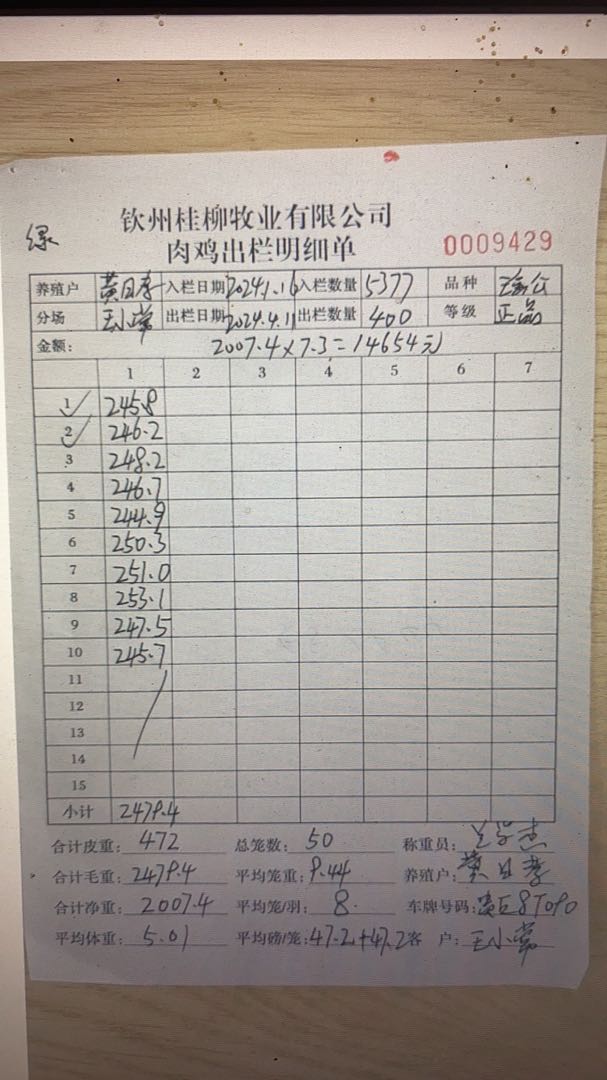 绿
钦州桂柳牧业有限公司
肉鸡出栏明细单
0009429
养殖户 黄日孝 入栏日期 2024.1.16 入栏数量 5377 品种
分场 王小常 出栏日期 2024.4.11 出栏数量 400 等级 正品
金额: 2007.4×7.3=14654元
1 2 3 4 5 6 7
1 245.8
2 246.2
3 248.2
4 246.7
5 244.9
6 250.3
7 251.0
8 253.1
9 247.5
10 245.7
11
12
13
14
15
小计 2479.4
合计皮重: 472 总笼数: 50 称重员:
合计毛重: 2479.4 平均笼重: 9.44 养殖户: 黄日孝
合计净重: 2007.4 平均笼/羽: 8. 车牌号码:
平均体重: 5.01 平均磅/笼: 47.2+47.2 客 户: 王小常